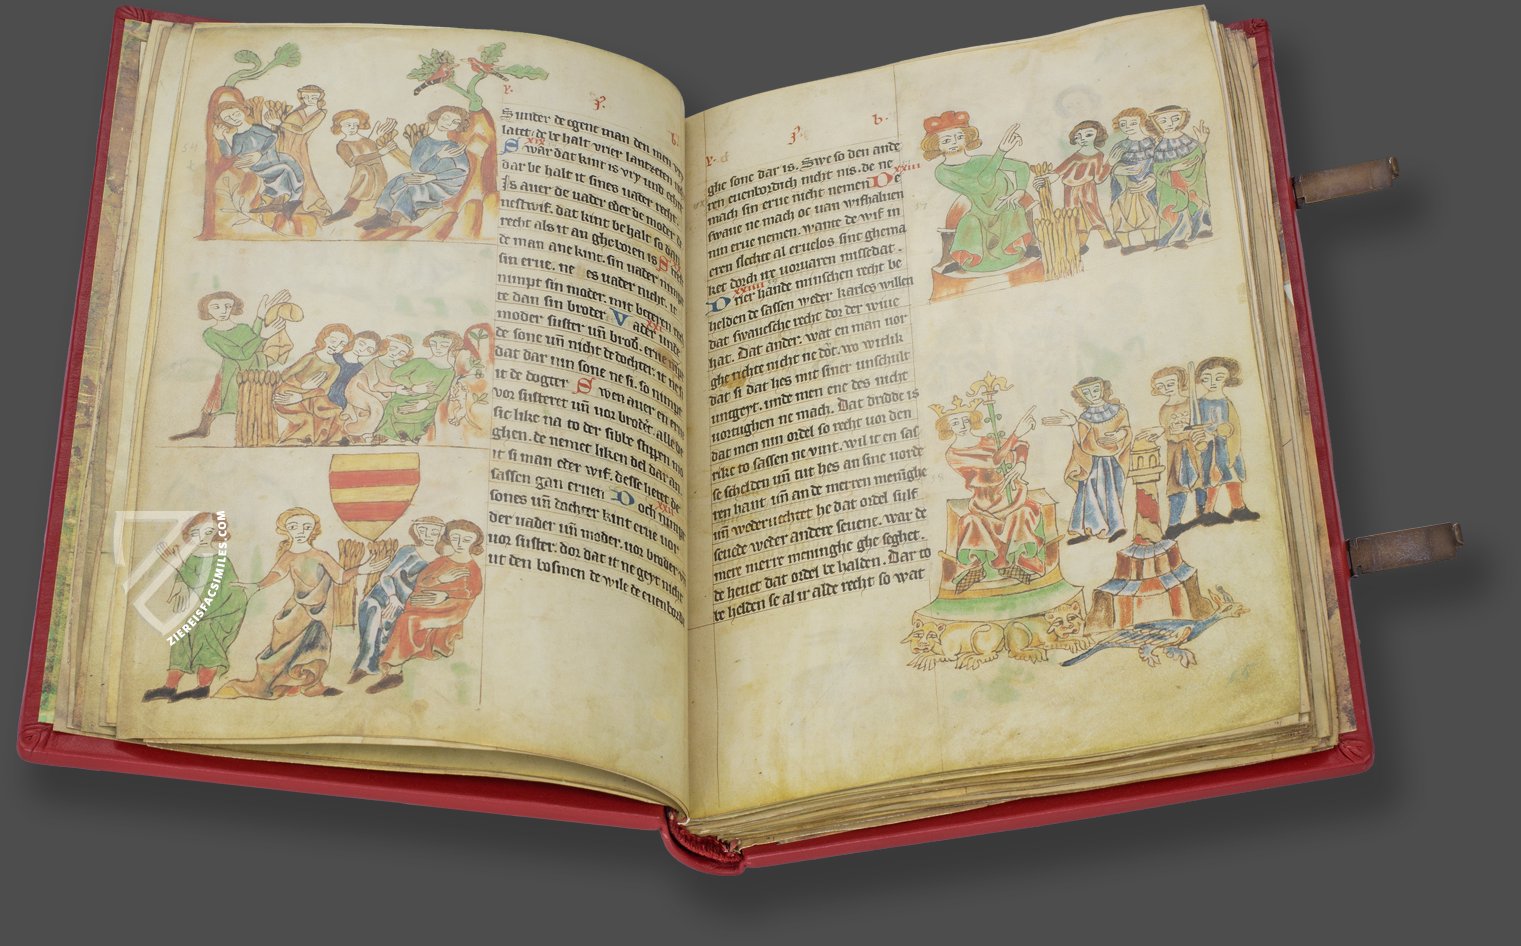 Sunder de egent man den men vry
latet. de be halt vrier lantzeten
xix
Swar dat kint is vry und echte
dar be halt it sines vader recht.
Is auer de vader eder de moder
nestwif. dat kint be halt so dan
recht als it an gheboren is S
de man ane kint. sin vader nimpt
sin erue. ne es vader nicht. it
nimpt sin moder. mit beteren
te dan sin broder Vader unde
moder suster un brod. erue
de sone un nicht de dochter. it ne
dat dar nin sone ne si. so nimpt
it de dogter Swen auer en erue
vor susteret un vor broder. alle de
sic like na to der sibbe
ghen. de nemet liken del dar an.
it si man eder wif. desse hetet de
sassen gan eruen Doch nimpt
sones un dochter kint erue vor
der vader un moder. vor broder
vor suster. dor dat it ne geyt nicht
ut den bosmen de wile de
ghe sone dar is. Swe so den ande
ren euenbordich nicht nis. de ne
xxiii
mach sin erue nicht nemen De
swaue ne mach oc van wifhaluen
nin erue nemen. wante de wif in
eren slechte al eruelos sint ghema
ket dorch ire voruaren missedat.
xxiiii
Drier hande minschen recht be
helden de sassen weder karles willen
dat swauesche recht dor der wiue
hat. Dat ander. wat en man vor
ghe richte nicht ne dot. wo witlik
dat si dat hes mit siner unschult
untgeyt. unde men ene des nicht
vortughen ne mach. Dat dridde is
dat men nin ordel so recht vor den
rike to sassen ne vint. wil it en sas
se schelden un tut hes an sine vorde
ren hant un an de merren menighe
un wederuechtet he dat ordel sulf
seuede weder andere seuene. war de
mere merre meninghe ghe seghet.
de heuet dat ordel be halden. Dar to
be helden se al ir alde recht so wat
ZIEREISFACSIMILES.COM